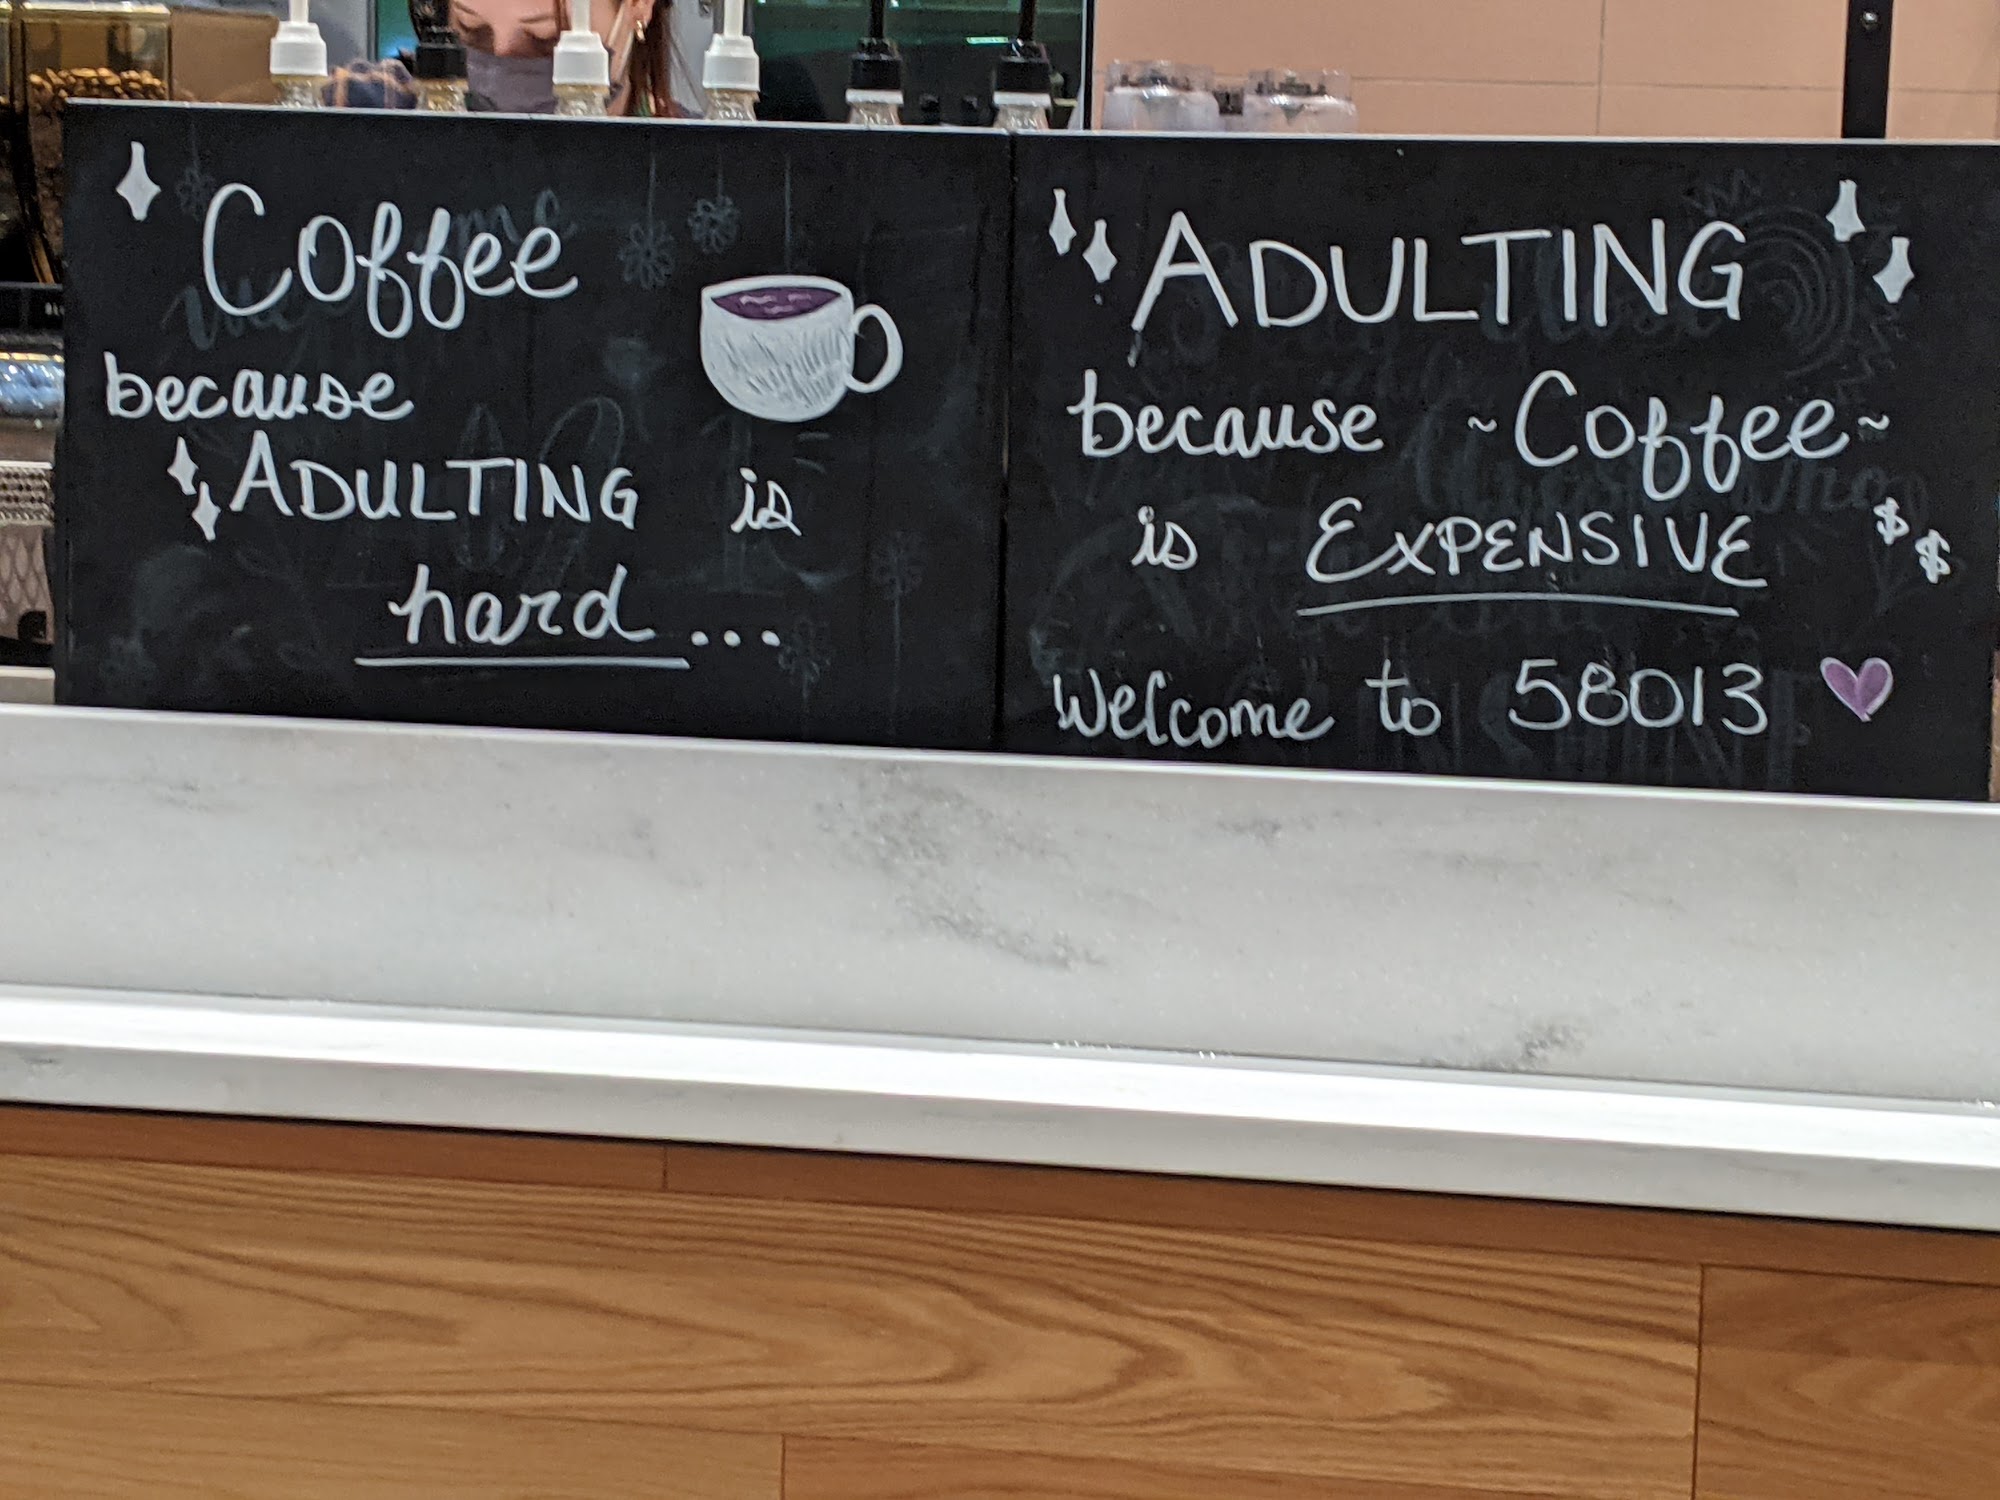 Coffee
because
ADULTING is
hard...
ADULTING
because ~Coffee~
is EXPENSIVE $$
Welcome to 58013